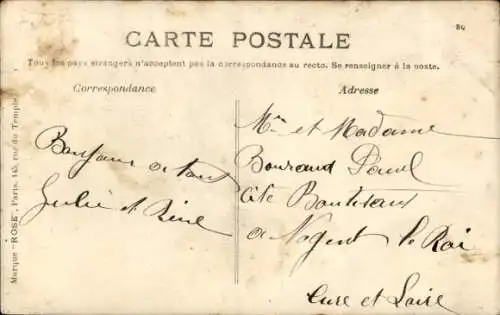 80
CARTE POSTALE
Tous les pays étrangers n'acceptent pas la correspondance au recto. Se renseigner à la poste.
Correspondance
Bonjour a tous
Julie et René
Adresse
Mr et Madame
Paul
Cité
a Nogent le Roi
Eure et Loire
Marque "ROSE", Paris, 145, rue du Temple